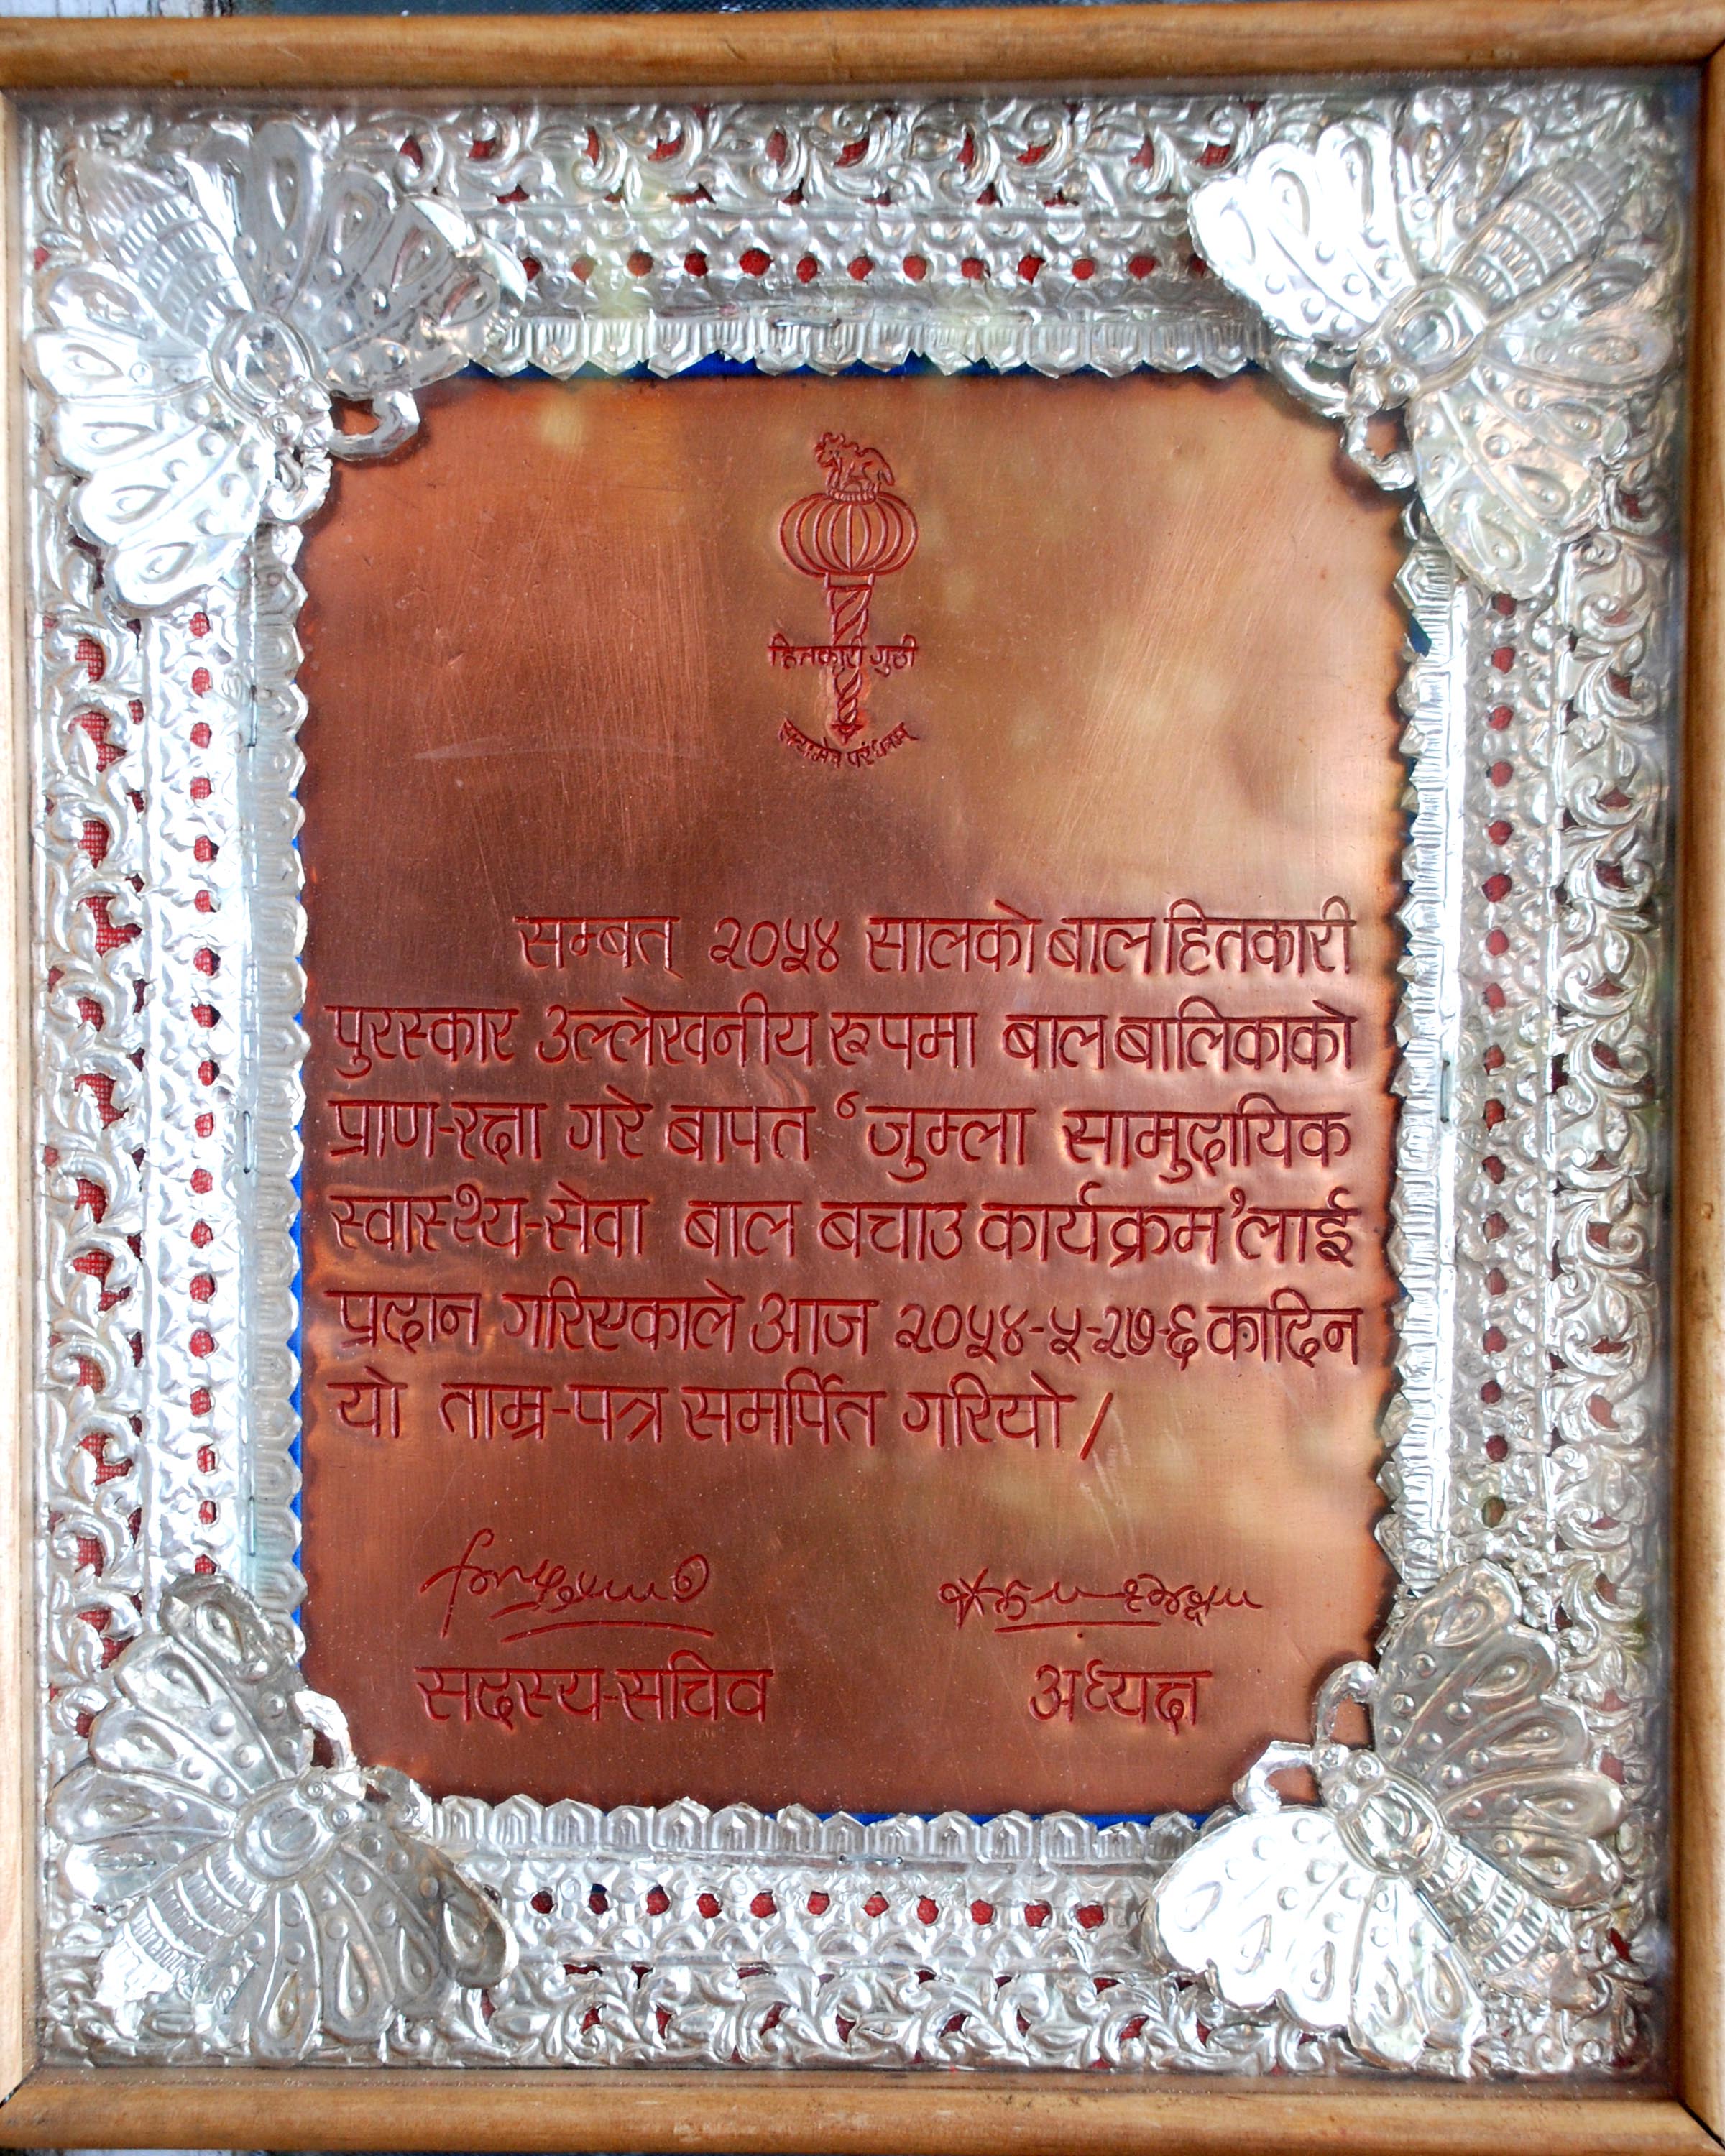 हितकारी गुठी
सम्बत् २०५४ सालको बाल हितकारी
पुरस्कार उल्लेखनीय रूपमा बालबालिकाको
प्राण-रक्षा गरे बापत ‘जुम्ला सामुदायिक
स्वास्थ्य-सेवा बाल बचाउ कार्यक्रम’लाई
प्रदान गरिएकाले आज २०५४-५-२७-६ कादिन
यो ताम्र-पत्र समर्पित गरियो /
सदस्य-सचिव अध्यक्ष